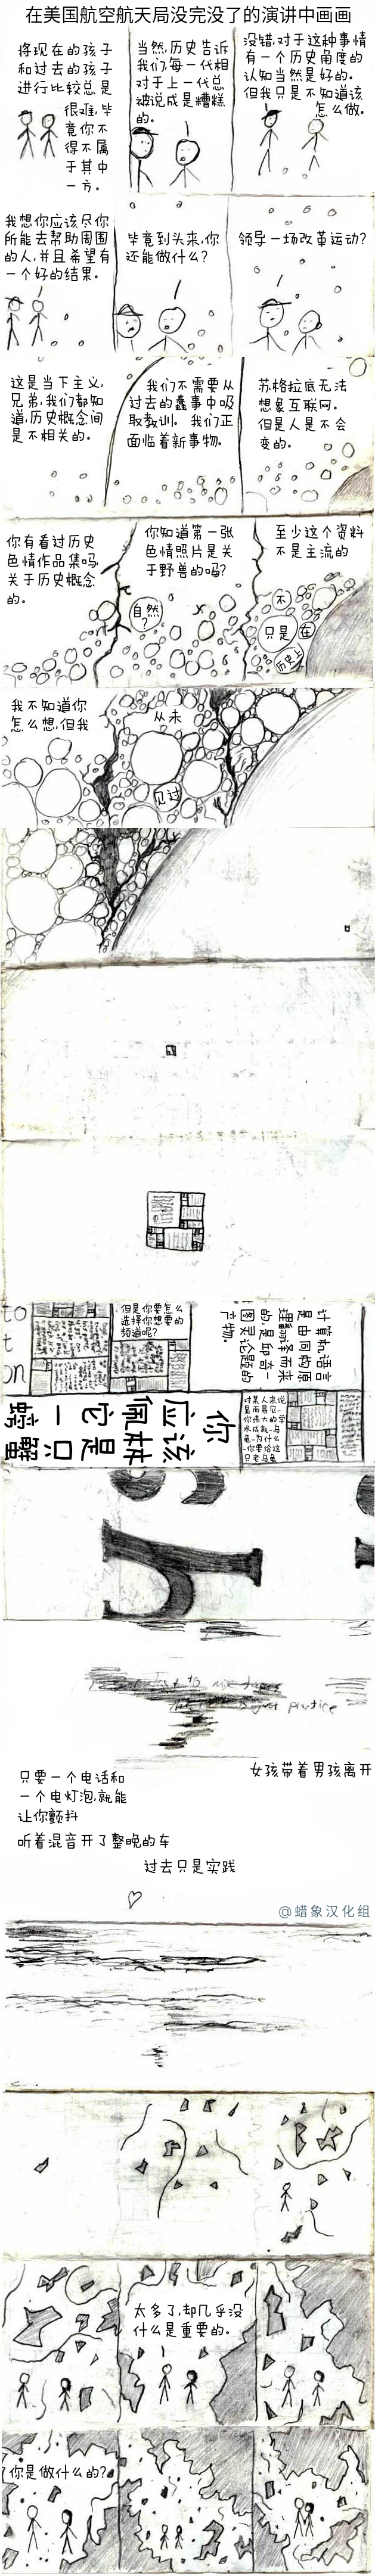 在美国航空航天局没完没了的演讲中画画
将现在的孩子
和过去的孩子
进行比较总是
很难,毕
竟你不
得不属
于其中
一方。
当然,历史告诉
我们,每一代相
对于上一代总
被说成是糟糕
的。
没错,对于这种事情
有一个历史角度的
认知当然是好的。
但我只是不知道该
怎么做。
我想你应该尽你
所能去帮助周围
的人,并且希望有
一个好的结果。
毕竟到头来,你
还能做什么?
领导一场改革运动?
这是当下主义,
兄弟,我们都知
道,历史概念间
是不相关的。
我们不需要从
过去的蠢事中吸
取教训。我们正
面临着新事物。
苏格拉底无法
想象互联网。
但是人是不会
变的。
你有看过历史
色情作品集吗,
关于历史概念
的。
你知道第一张
色情照片是关
于野兽的吗?
自然
?
至少这个资料
不是主流的
不
只是
在
历史上
我不知道你
怎么想,但我
从未
见过
to
t
on
但是你要怎么
选择你想要的
频道呢?
计算机语言
是由同构原
理翻译而来
的,是邱奇-
图灵论题的
产物。
你
应该
佩林
它是
一只
对某人来说
显而易见-
你伟大的学
术成就-乌
龟-为什么
-你要给这
只老乌龟
只要一个电话和
一个电灯泡,就能
让你颤抖
女孩带着男孩离开
听着混音开了整晚的车
过去只是实践
@蜡象汉化组
太多了,却几乎没
什么是重要的。
你是做什么的?